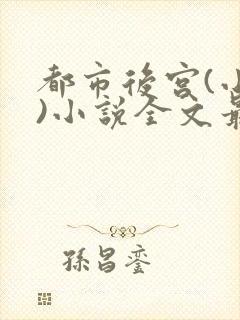 都市後宮(
)小說全文
孫昌鑾